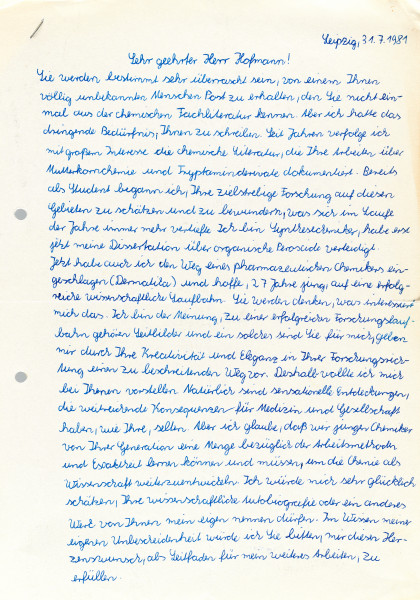 Leipzig, 31.7.1981
Sehr geehrter Herr Hofmann!
Sie werden bestimmt sehr überrascht sein, von einem Ihnen
völlig unbekannten Menschen Post zu erhalten, den Sie nicht ein-
mal aus der chemischen Fachliteratur kennen. Aber ich hatte das
dringende Bedürfnis, Ihnen zu schreiben. Seit Jahren verfolge ich
mit großem Interesse die chemische Literatur, die Ihre Arbeiten über
Mutterkornchemie und Tryptaminderivate dokumentiert. Bereits
als Student begann ich, Ihre zielstrebige Forschung auf diesen
Gebieten zu schätzen und zu bewundern, was sich im Laufe
der Jahre immer mehr vertiefte. Ich bin Synthesechemiker, habe erst
jetzt meine Dissertation über organische Peroxide verteidigt.
Jetzt habe auch ich den Weg eines pharmazeutischen Chemikers ein-
geschlagen (Dermatika) und hoffe, 27 Jahre jung, auf eine erfolg-
reiche wissenschaftliche Laufbahn. Sie werden denken, was interessiert
mich das. Ich bin der Meinung, zu einer erfolgreichen Forschungslauf-
bahn gehören Leitbilder und ein solches sind Sie für mich, geben
mir durch Ihre Kreativität und Eleganz in Ihrer Forschungsrich-
tung einen zu beschreitenden Weg vor. Deshalb wollte ich mich
bei Ihnen vorstellen. Natürlich sind sensationelle Entdeckungen,
die weitreichende Konsequenzen für Medizin und Gesellschaft
haben, wie Ihre, selten. Aber ich glaube, daß wir jungen Chemiker
von Ihrer Generation eine Menge bezüglich der Arbeitsmethoden
und Exaktheit lernen können und müssen, um die Chemie als
Wissenschaft weiterzuentwickeln. Ich würde mich sehr glücklich
schätzen, Ihre wissenschaftliche Autobiografie oder ein anderes
Werk von Ihnen mein eigen nennen dürfen. Im Wissen meine
eigenen Unbescheidenheit würde ich Sie bitten, mir diesen Her-
zenswunsch, als Leitfaden für mein weiteres Arbeiten, zu
erfüllen.